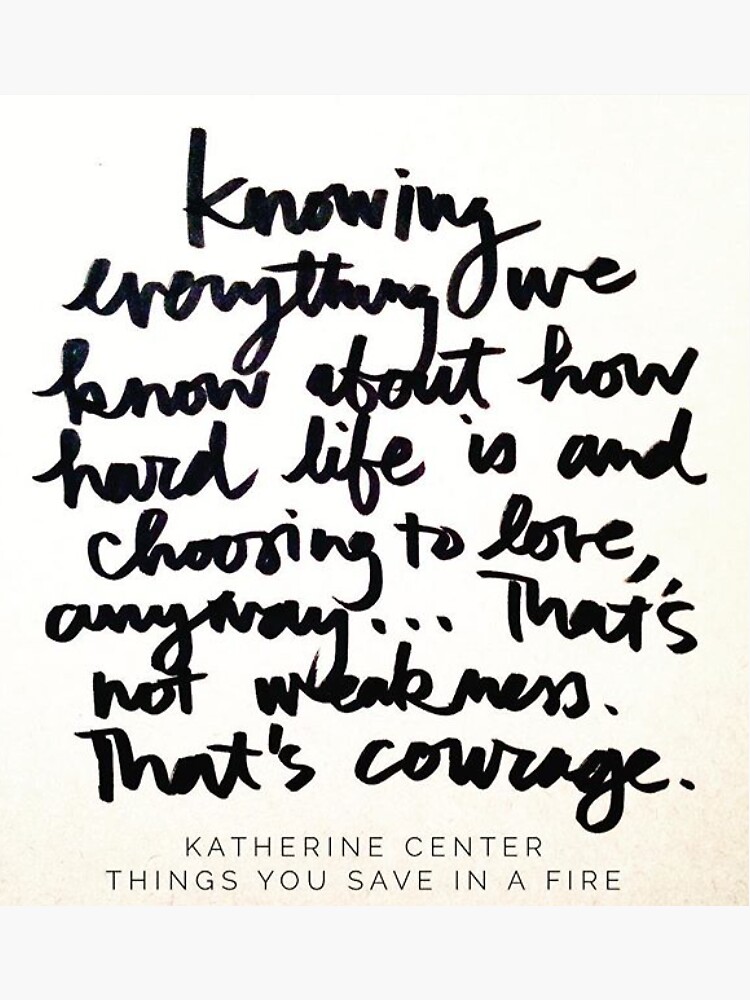 Knowing
everything we
know about how
hard life is and
choosing to love,
anyway... That's
not weakness.
That's courage.
KATHERINE CENTER
THINGS YOU SAVE IN A FIRE